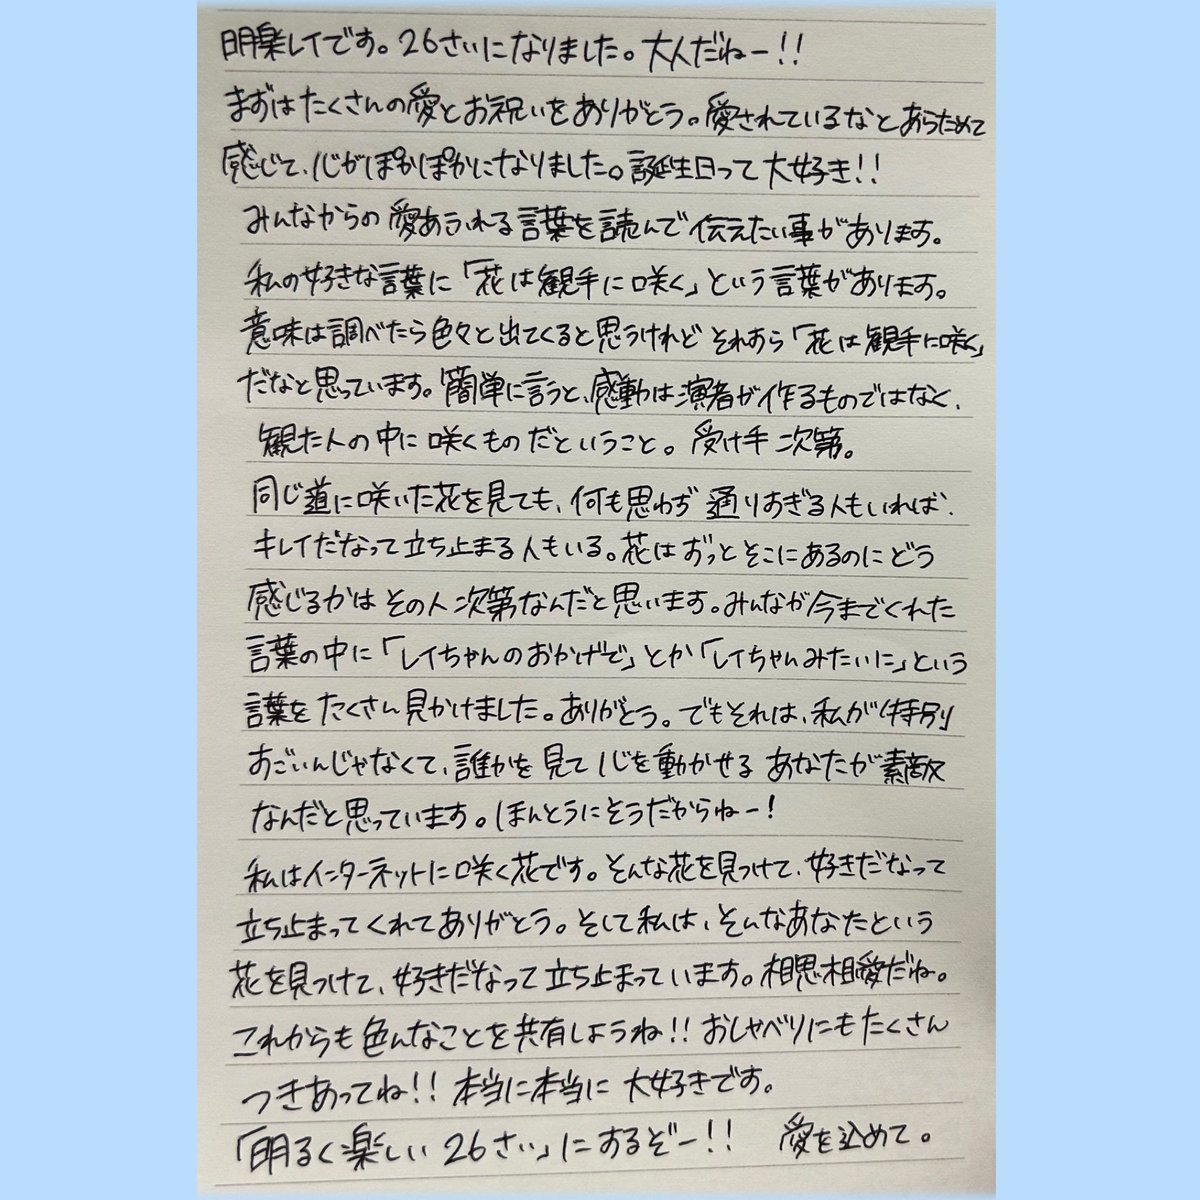 明楽レイです。26さいになりました。大人だねー!!
まずはたくさんの愛とお祝いをありがとう。愛されているなとあらためて
感じて、心がぽかぽかになりました。誕生日って大好き!!
みんなからの愛あふれる言葉を読んで伝えたい事があります。
私の好きな言葉に「花は観手に咲く」という言葉があります。
意味は調べたら色々と出てくると思うけれどそれすら「花は観手に咲く」
だなと思っています。簡単に言うと、感動は演者が作るものではなく、
観た人の中に咲くものだということ。受け手次第。
同じ道に咲いた花を見ても、何も思わず通りすぎる人もいれば、
キレイだなって立ち止まる人もいる。花はずっとそこにあるのにどう
感じるかはその人次第なんだと思います。みんなが今までくれた
言葉の中に「レイちゃんのおかげで」とか「レイちゃんみたいに」という
言葉をたくさん見かけました。ありがとう。でもそれは、私が特別
すごいんじゃなくて、誰かを見て心を動かせるあなたが素敵
なんだと思っています。ほんとうにそうだからねー!
私はインターネットに咲く花です。そんな花を見つけて、好きだなって
立ち止まってくれてありがとう。そして私は、そんなあなたという
花を見つけて、好きだなって立ち止まっています。相思相愛だね。
これからも色んなことを共有しようね!!おしゃべりにもたくさん
つきあってね!!本当に本当に大好きです。
「明るく楽しい26さい」にするぞー!! 愛を込めて。